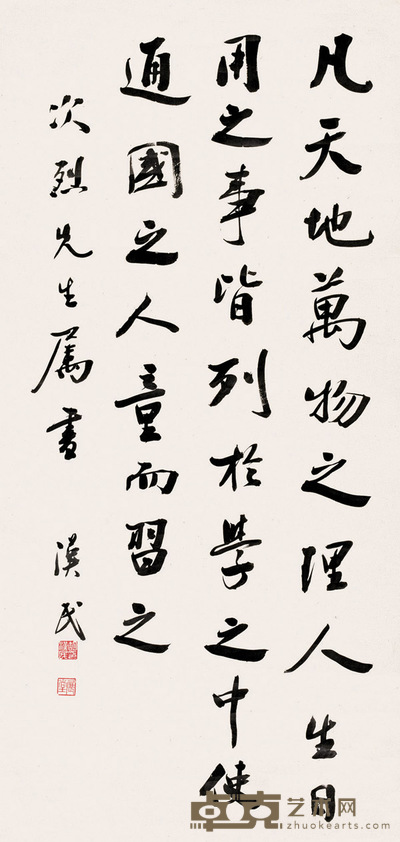 凡天地萬物之理人生日
用之事皆列於學之中使
通國之人童而習之
次烈先生屬書 漢民
卓克艺术网
zhuokearts.com